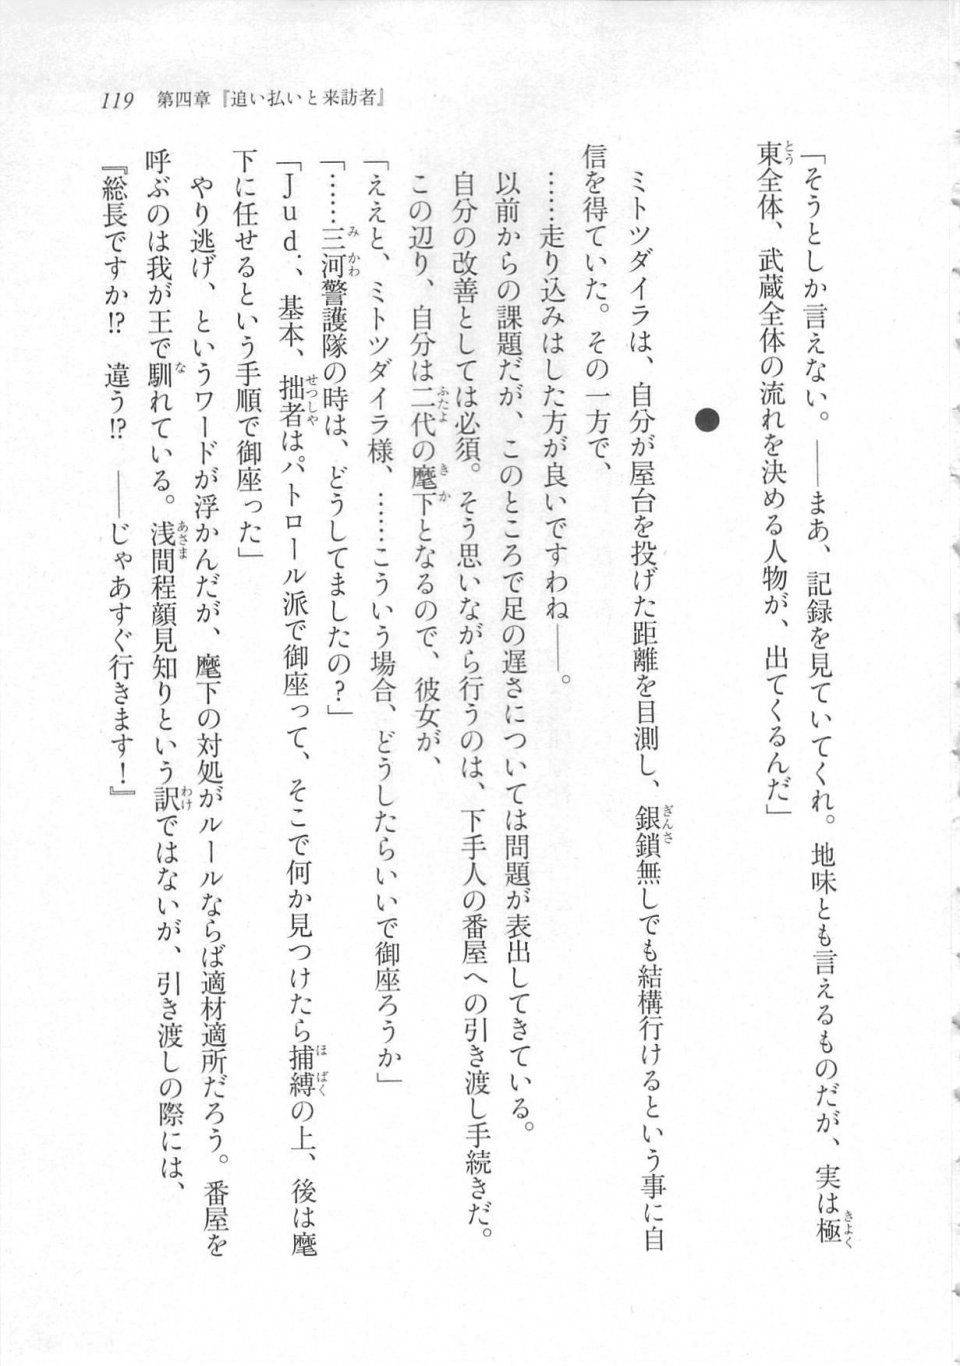 119　第四章『追い払いと来訪者』
「そうとしか言えない。――まあ、記録を見ていてくれ。地味とも言えるものだが、実は極
東全体、武蔵全体の流れを決める人物が、出てくるんだ」
●
　ミトツダイラは、自分が屋台を投げた距離を目測し、銀鎖無しでも結構行けるという事に自
信を得ていた。その一方で、
　……走り込みはした方が良いですわね――。
　以前からの課題だが、このところで足の遅さについては問題が表出してきている。
　自分の改善としては必須。そう思いながら行うのは、下手人の番屋への引き渡し手続きだ。
　この辺り、自分は二代の麾下となるので、彼女が、
「ええと、ミトツダイラ様、……こういう場合、どうしたらいいで御座ろうか」
「……三河警護隊の時は、どうしてましたの？」
「Ｊｕｄ.、基本、拙者はパトロール派で御座って、そこで何か見つけたら捕縛の上、後は麾
下に任せるという手順で御座った」
　やり逃げ、というワードが浮かんだが、麾下の対処がルールならば適材適所だろう。番屋を
呼ぶのは我が王で馴れている。浅間程顔見知りという訳ではないが、引き渡しの際には、
『総長ですか!?　違う!?　――じゃあすぐ行きます！』